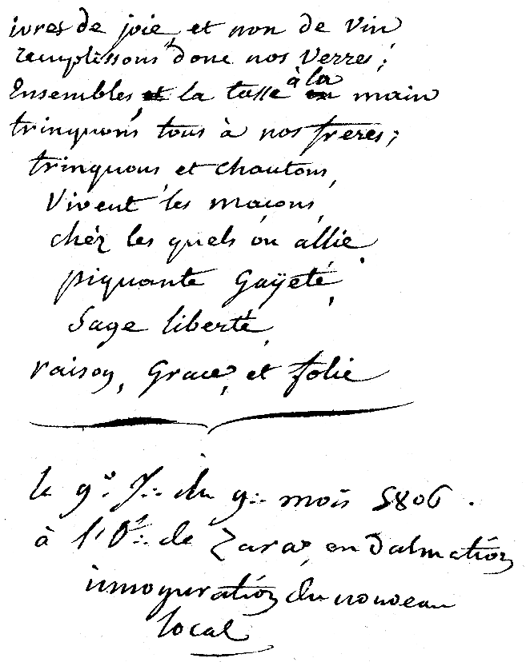 ivres de joie, et non de vin
remplissons donc nos verres;
Ensembles, et la tasse à la en main
trinquons tous à nos freres;
trinquons et chantons,
Vivent les maçons,
chéz les quels on allie
piquante Gayeté,
Sage liberté,
raison, Grace, et folie
le 9e J∴ du 9∴ mois 5806.
à l'O∴ de Zara, en dalmation
innoguration du nouveau
local